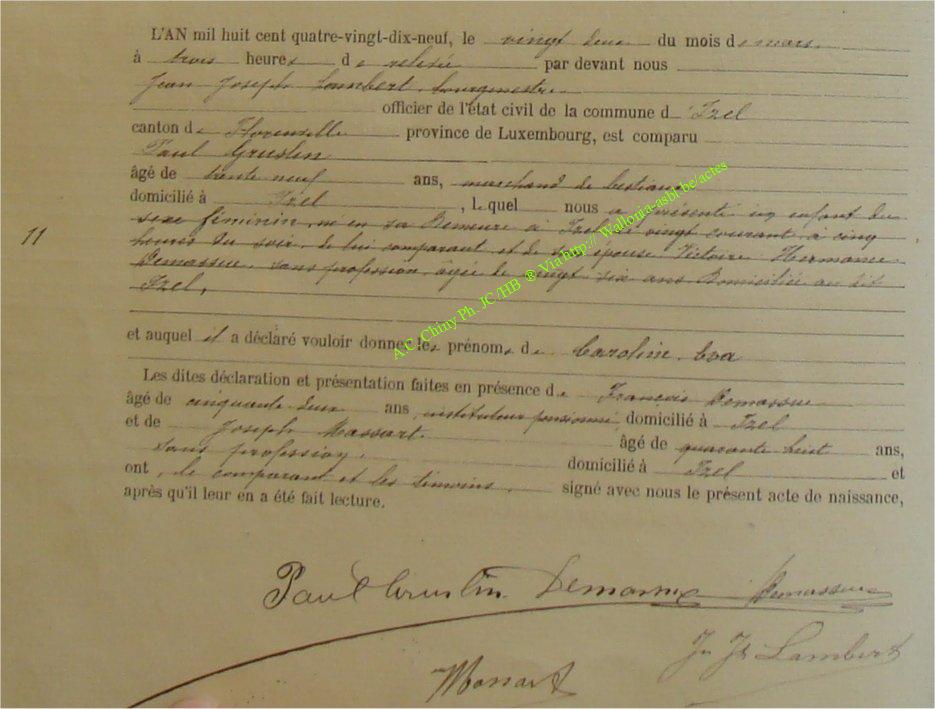 L'AN mil huit cent quatre-vingt-dix-neuf, le vingt deux du mois de mars
à trois heures de relevée par devant nous
Jean Joseph Lambert bourgmestre
officier de l'état civil de la commune d'Izel
canton de Florenville province de Luxembourg, est comparu
Paul Gruslin
âgé de trente neuf ans, marchand de bestiaux
domicilié à Izel, lequel nous a présenté un enfant du
sexe féminin, né en sa demeure à Izel le vingt courant à cinq
11
heures du soir, de lui comparant et de son épouse Victoire Hermance
Demassue, sans profession, âgée de vingt six ans domiciliée au dit
Izel,
et auquel il a déclaré vouloir donner les prénoms de Caroline Eva
Les dites déclaration et présentation faites en présence de François Demassue
âgé de cinquante deux ans, instituteur pensionné, domicilié à Izel
et de Joseph Massart. âgé de quarante huit ans,
sans profession, domicilié à Izel et
ont, le comparant et les témoins, signé avec nous le présent acte de naissance,
après qu'il leur en a été fait lecture.
Paul Gruslin Demassue
Jn Jh Lambert
Massart
A.C. Chiny Ph. JC /HB ® Via http:// Wallonia-asbl.be/actes